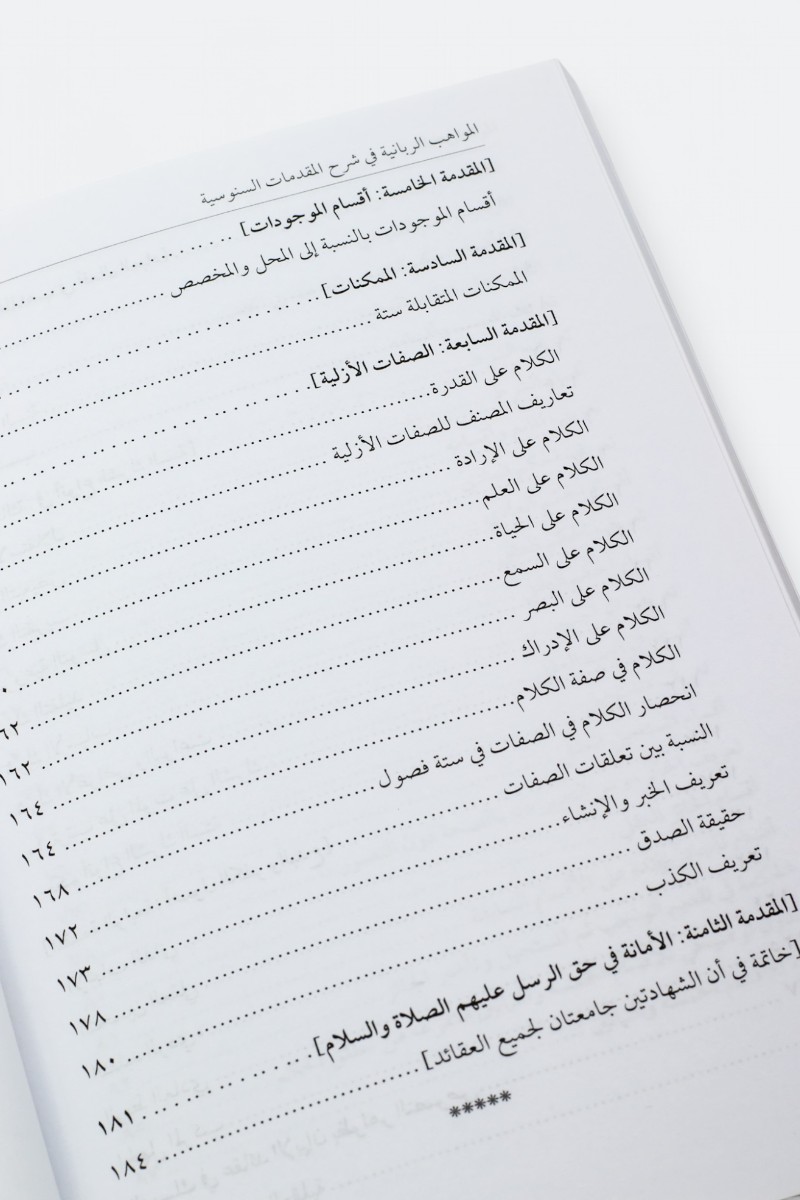 المواهب الربانية في شرح المقدمات السنوسية
[المقدمة الخامسة: أقسام الموجودات] ..........
أقسام الموجودات بالنسبة إلى المحل والمخصص ..........
[المقدمة السادسة: الممكنات] ..........
الممكنات المتقابلة ستة ..........
[المقدمة السابعة: الصفات الأزلية] ..........
الكلام على القدرة ..........
تعاريف المصنف للصفات الأزلية ..........
الكلام على الإرادة ..........
الكلام على العلم ..........
الكلام على الحياة ..........
الكلام على السمع .......... ٦٢
الكلام على البصر .......... ١٦٢
الكلام على الإدراك .......... ١٦٤
الكلام في صفة الكلام .......... ١٦٤
انحصار الكلام في الصفات في ستة فصول .......... ١٦٨
النسبة بين تعلقات الصفات .......... ١٧٢
تعريف الخبر والإنشاء .......... ١٧٣
حقيقة الصدق .......... ١٧٨
تعريف الكذب .......... ١٨٠
[المقدمة الثامنة: الأمانة في حق الرسل عليهم الصلاة والسلام] .......... ١٨١
[خاتمة في أن الشهادتين جامعتان لجميع العقائد] .......... ١٨٤
*****